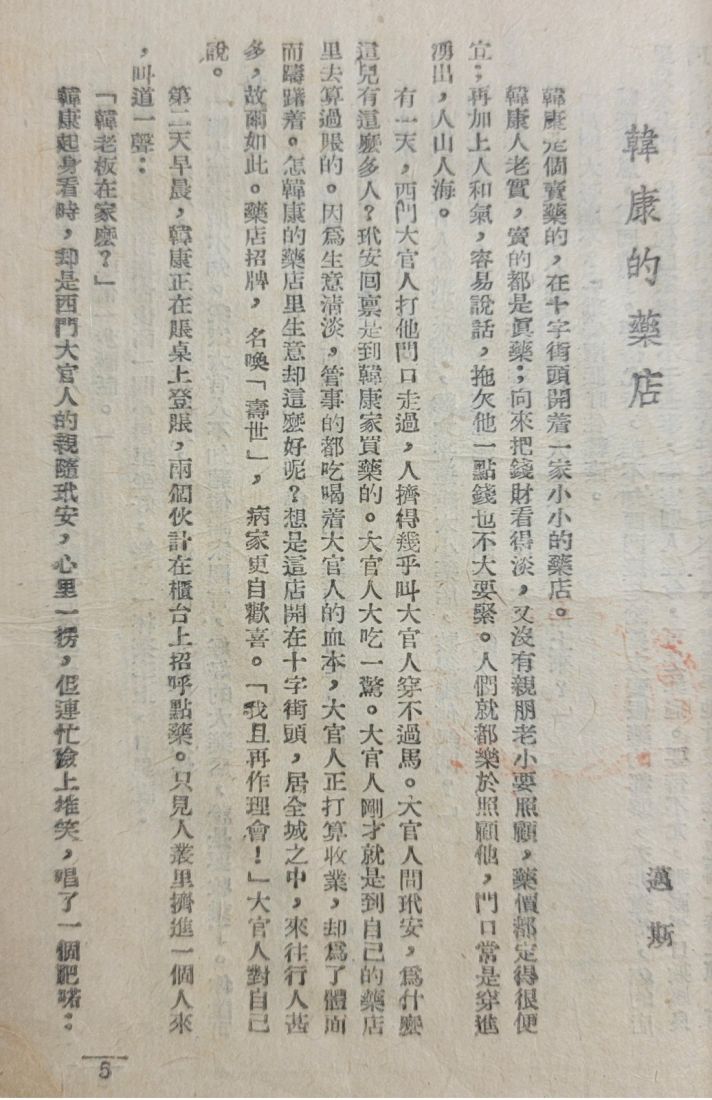 韓康的藥店
邁斯
韓康是個賣藥的，在十字街頭開着一家小小的藥店。
韓康人老實，賣的都是眞藥；向來把錢財看得淡，又沒有親朋老小要照顧，藥價都定得很便
宜；再加上人和氣，容易說話，拖欠他一點錢也不大要緊。人們就都樂於照顧他，門口常是穿進
湧出，人山人海。
有一天，西門大官人打他門口走過，人擠得幾乎叫大官人穿不過馬。大官人問玳安，爲什麼
這兒有這麼多人？玳安回禀是到韓康家買藥的。大官人大吃一驚。大官人剛才就是到自己的藥店
里去算過賬的。因爲生意清淡，管事的都吃喝着大官人的血本，大官人正打算收業，却爲了體面
而躊躇着。怎韓康的藥店里生意却這麼好呢？想是這店開在十字街頭，居全城之中，來往行人甚
多，故爾如此。藥店招牌，名喚「壽世」，病家更自歡喜。「我且再作理會！」大官人對自己
說。
第二天早晨，韓康正在賬桌上登賬，兩個伙計在櫃台上招呼點藥。只見人叢里擠進一個人來
，叫道一聲：
「韓老板在家麼？」
韓康起身看時，却是西門大官人的親隨玳安，心里一楞，但連忙臉上堆笑，唱了一個肥喏：
5